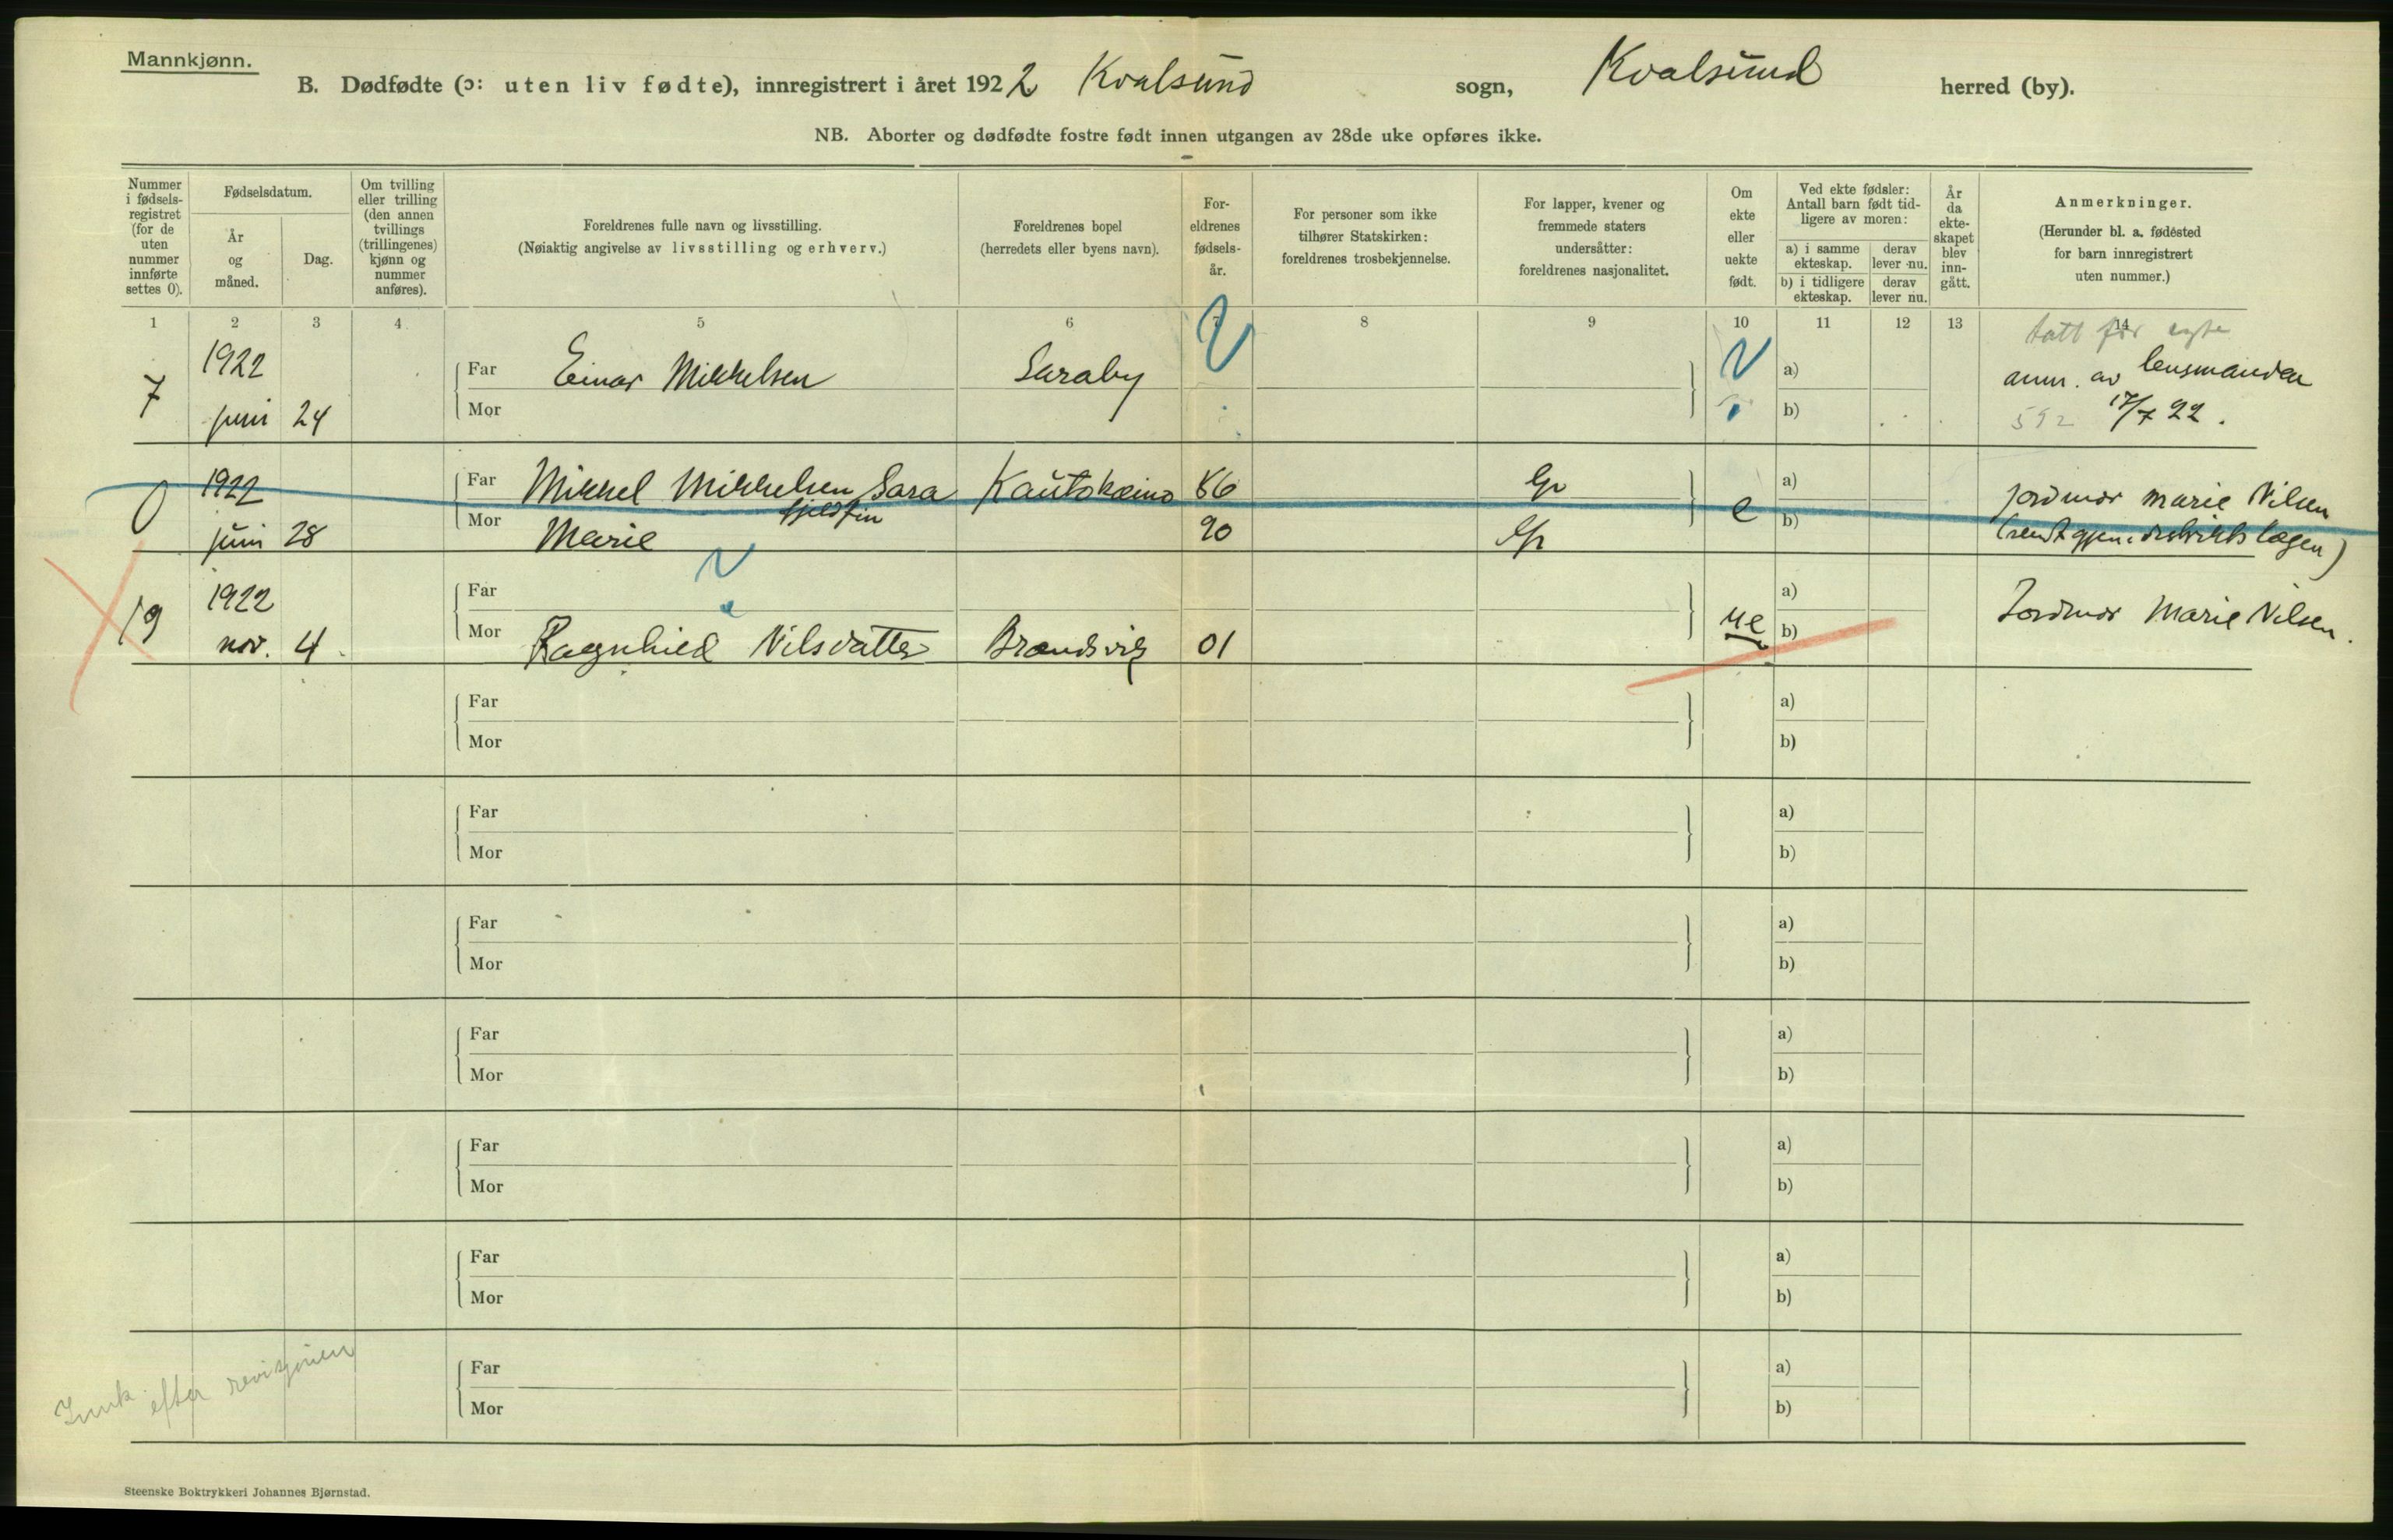 Mannkjønn.
B. Dødfødte (ɔ: uten liv fødte), innregistrert i året 1922 Kvalsund sogn, Kvalsund herred (by).
NB. Aborter og dødfødte fostre født innen utgangen av 28de uke opføres ikke.
Nummer
i fødsels-
registret
(for de
uten
nummer
innførte
settes 0).
Fødselsdatum.
År
og
måned.
Dag.
Om tvilling
eller trilling
(den annen
tvillings
(trillingenes)
kjønn og
nummer
anføres).
Foreldrenes fulle navn og livsstilling.
(Nøiaktig angivelse av livsstilling og erhverv.)
Foreldrenes bopel
(herredets eller byens navn).
For-
eldrenes
fødsels-
år.
For personer som ikke
tilhører Statskirken:
foreldrenes trosbekjennelse.
For lapper, kvener og
fremmede staters
undersåtter:
foreldrenes nasjonalitet.
Om
ekte
eller
uekte
født.
Ved ekte fødsler:
Antall barn født tid-
ligere av moren:
a) i samme
ekteskap.
derav
lever nu.
b) i tidligere
ekteskap.
derav
lever nu.
År
da
ekte-
skapet
blev
inn-
gått.
Anmerkninger.
(Herunder bl. a. fødested
for barn innregistrert
uten nummer.)
1 2 3 4 5 6 7 8 9 10 11 12 13 14
tatt for egte
7 1922 Far Einar Mikkelsen Saraby a) anm. av lensmanden
juni 24 Mor b) 592 17/7 22.
0 1922 Far Mikkel Mikkelsen Sara Kautokeino 86 a) jordmor Marie Nilsen
fjeldfin
juni 28 Mor Marie 90 e b) (sendt gjen. distriktslægen)
19 1922 Far a) Jordmor Marie Nilsen.
nov. 4. Mor Ragnhild Nilsdatter Brandsvig 01 ue b)
Far a)
Mor b)
Far a)
Mor b)
Far a)
Mor b)
Far a)
Mor b)
Far a)
Mor b)
Far a)
Mor b)
Far a)
Mor b)
efter revisjonen
Steenske Boktrykkeri Johannes Bjørnstad.